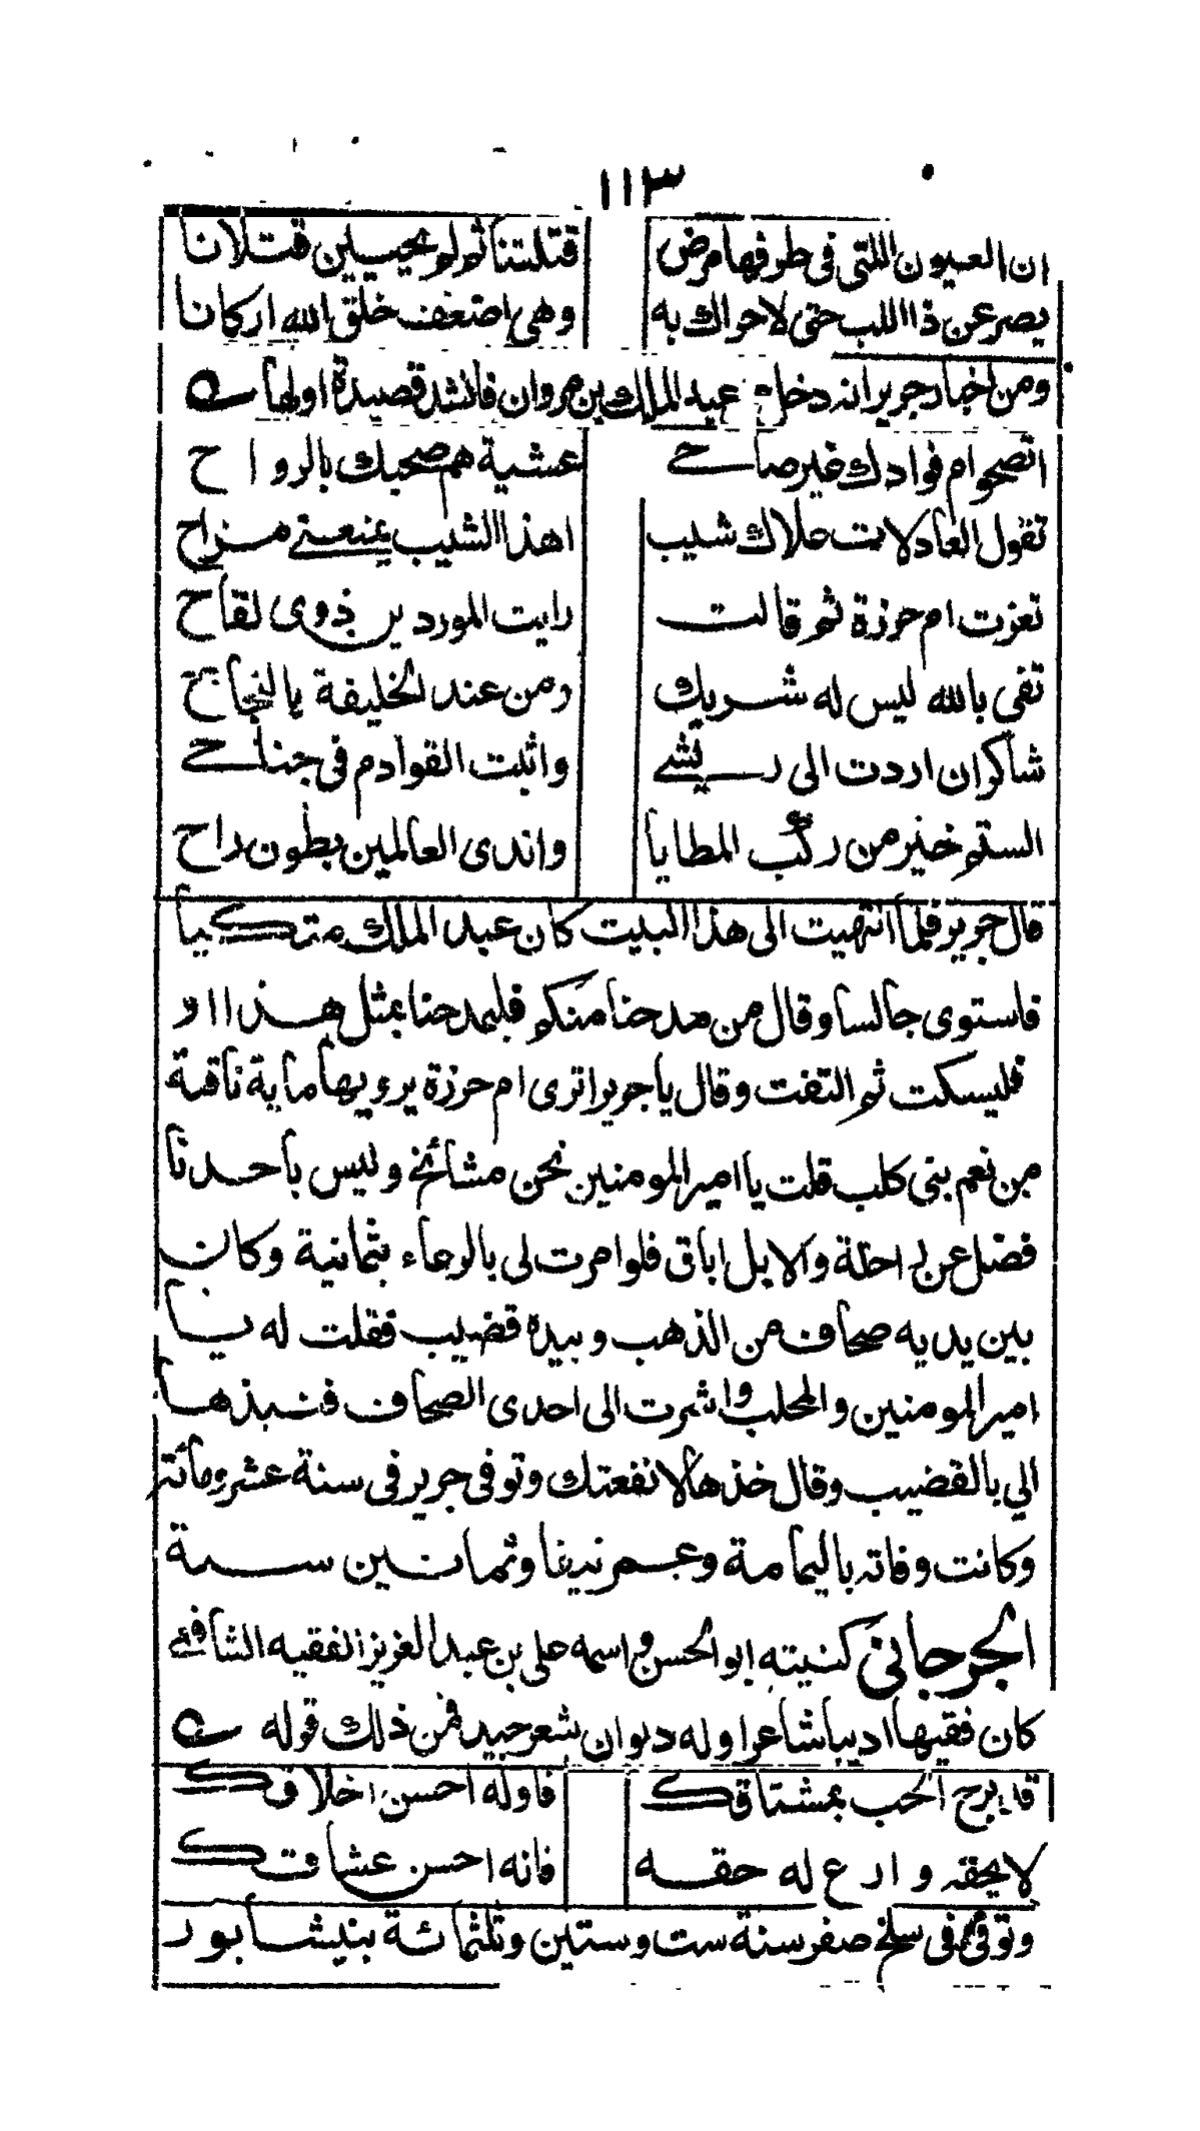 ١١٣
ان العيون اللتى فى طرفها مرض قتلتنا ثم لم يحيين قتلانا
يصرعن ذا اللب حتى لا حراك به وهى اضعف خلق الله اركانا
ومن اخبار جرير انه دخل عبد الملك بن مروان فانشد قصيدة اولها
اتصحوام فوادك غير صاحے عشية هم صحبك بالرواح
تقول العاذلات علاك شيب اهذا الشيب يمنعنے مزاح
تعزت ام حرزة ثم قالت رايت الموردين ذوى لقاح
تقى بالله ليس له شريك ومن عند الخليفة بالنجاح
شاكران اردت الى ريشے واثبت القوادم فى جناحے
الستم خير من ركب المطايا واندى العالمين بطون راح
قال جرير فلما انتهيت الى هذا البيت كان عبد الملك متكيا
فاستوى جالسا وقال من مدحنا منكم فليمدحنا بمثل هذا او
فليسكت ثم التفت وقال يا جرير اترى ام حرزة يرويها ماية ناقة
من نعم بنى كلب قلت يا امير المومنين نحن مشائخ وليس باحدنا
فضل عن راحلة والابل اباق فلو امرت لى بالرعاء بثمانية وكان
بين يديه صحاف من الذهب وبيده قضيب فقلت له يا
امير المومنين والمحلب واشرت الى احدى الصحاف فنبذها
الي بالقضيب وقال خذها لا نفعتك وتوفى جرير فى سنة عشر ومائة
وكانت وفاته باليمامة وعمر نيفا وثمانين سنة
الجرجانى كنيته ابو الحسن واسمه على بن عبد العزيز الفقيه الشافعے
كان فقيها اديبا شاعرا وله ديوان شعر جيد فمن ذلك قوله
قد برح الحب بمشتاقك فاوله احسن اخلاقك
لا يحقه وارع له حقه فانه احسن عشاقك
وتوفى فى سلخ صفر سنة ست وستين وثلثمائة بنيشابور